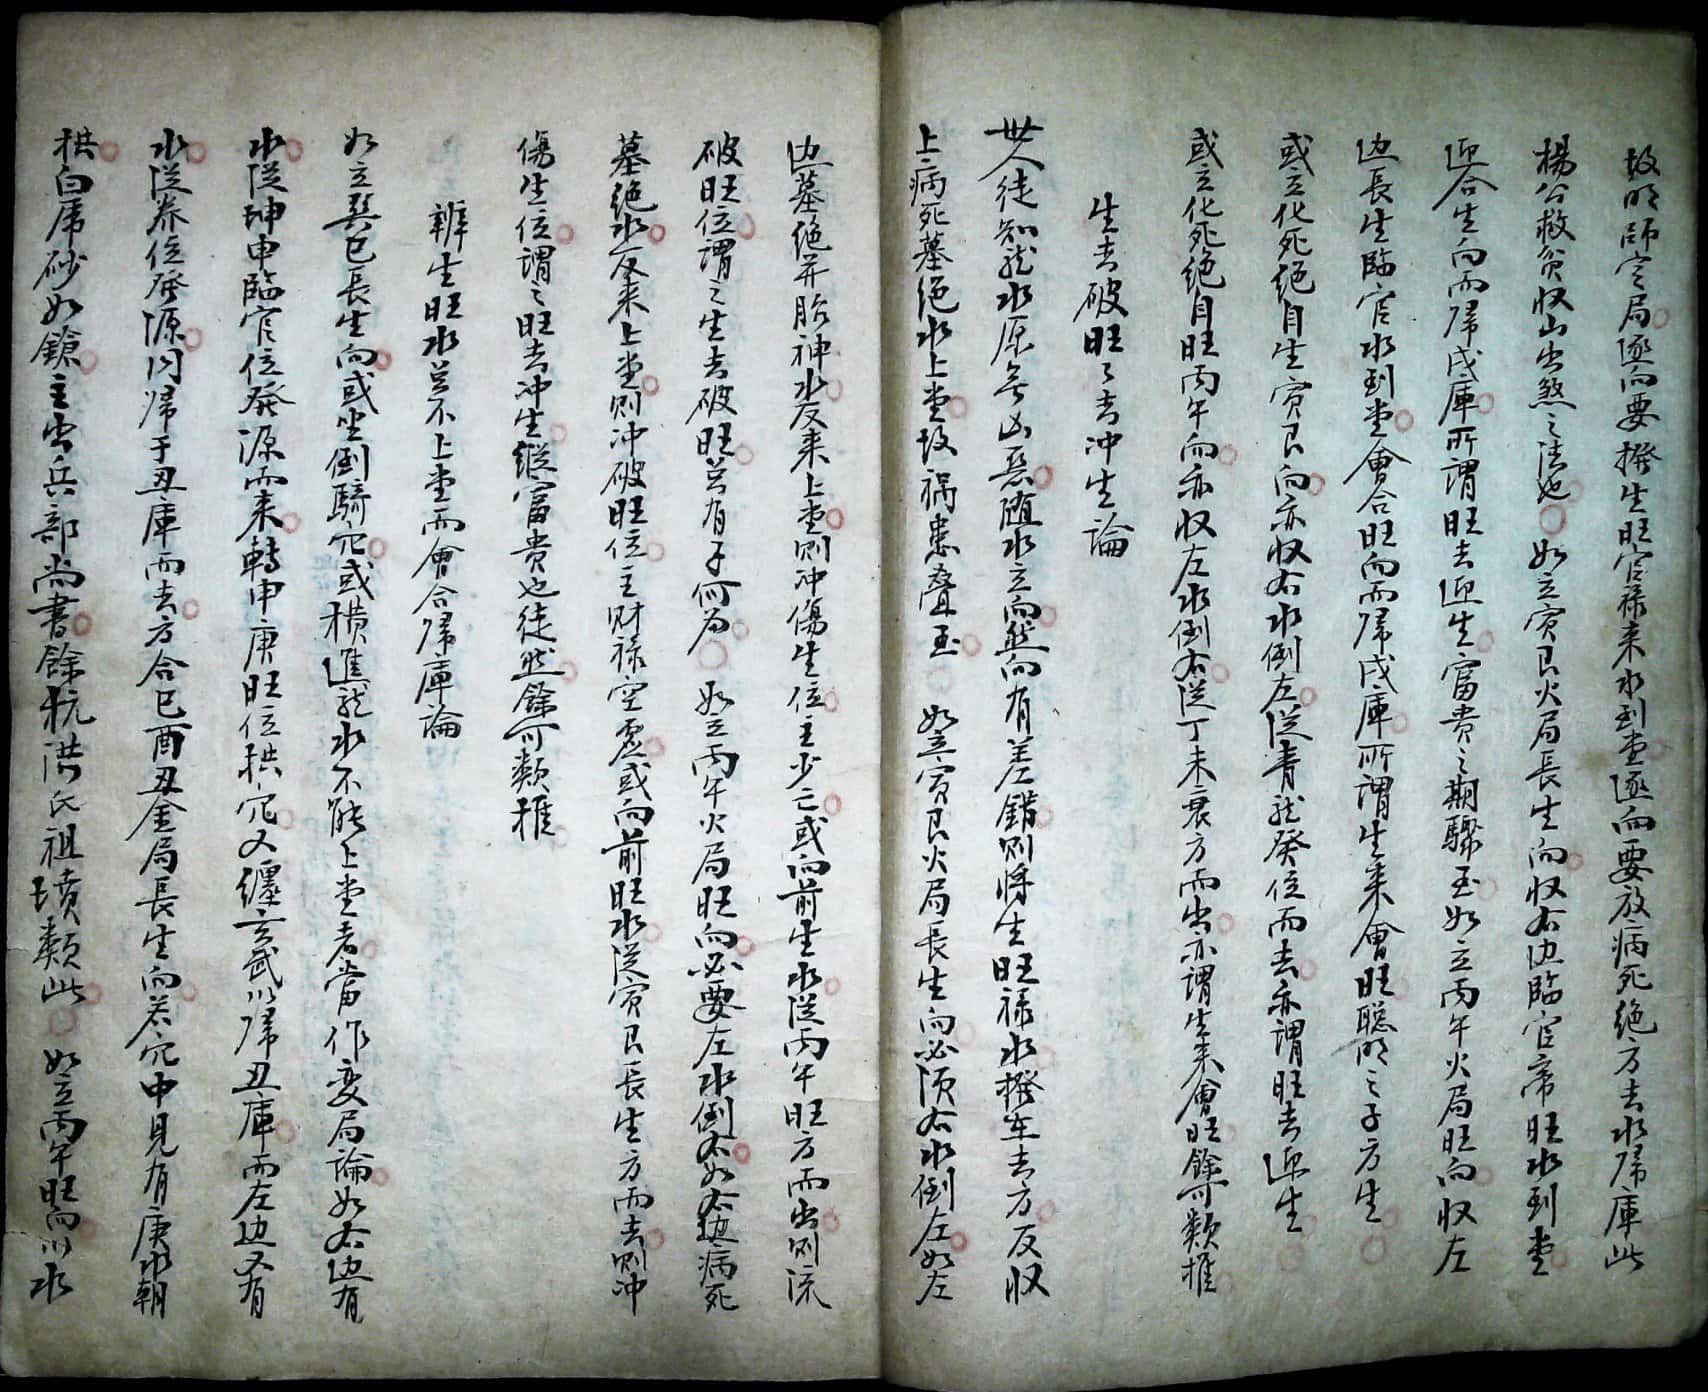 故明師定局逐向要撥生旺官祿来水到堂逐向要放病死絕方去水歸庫此
楊公救貧收山出煞之法也如立寅艮火局長生向收右边臨官帝旺水到堂
迎合生向而歸戌庫所謂旺去迎生富貴之期驟至如立丙午火局旺向收左
边長生臨官水到堂會合旺向而歸戌庫所謂生来會旺聰明之子方生
或立化死絕自生寅艮向亦收右水倒左從青龍癸位而去亦謂旺去迎生
或立化死絕自旺丙午向亦收左水倒右從丁未衰方而出亦謂生来會旺餘可類推
生去破旺々去冲生論
世人徒知龍水原無凶惡随水立向然向有差錯則将生旺祿水撥在去方反收
上病死墓絕水上堂故祸患叠至如立寅艮火局長生向必須右水倒左如左
边墓絕并胎神水反来上堂則冲傷生位主少亡或向前生水從丙午旺方而出則流
破旺位謂之生去破旺若有子何為如立丙午火局旺向必要左水倒右如右边病死
墓絕水反来上堂則冲破旺位主财祿空虛或向前旺水從寅艮長生方而去則冲
傷生位謂之旺去冲生縱富貴也徒然餘可類推
辨生旺水若不上堂而會合歸庫論
如立巽巳長生向或坐倒騎穴或横進龍水不能上堂者當作变局論如右边有
水從坤申臨官位發源而来轉申庚旺位拱穴又纏玄武以歸丑庫而左边又有
水從养位發源同歸于丑庫而去方合巳酉丑金局長生向若穴中見有庚水朝
拱白虎砂如鎗主出兵部尚書餘杭洪氏祖墳類此如立丙午旺向以水